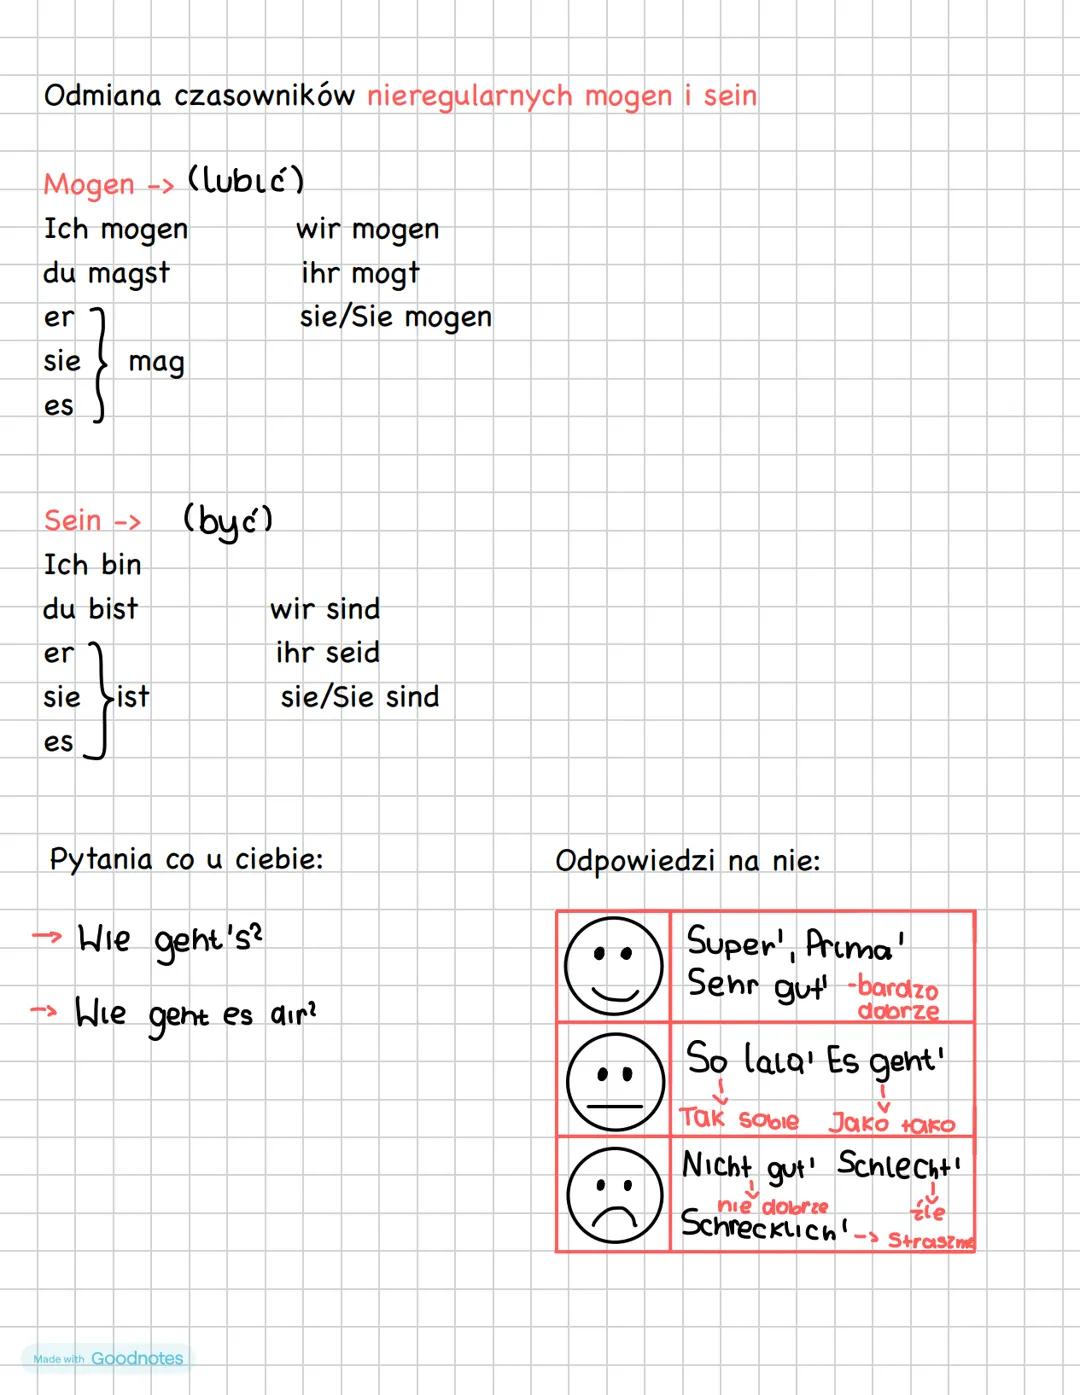 Odmiana czasowników nieregularnych mogen i sein
Mogen -> (lubić)
Ich mogen wir mogen
du magst ihr mogt
er sie/Sie mogen
sie mag
es
Sein -> (być)
Ich bin
du bist wir sind
er ihr seid
sie ist sie/Sie sind
es
Pytania co u ciebie:
-> Wie geht's?
-> Wie geht es dir?
Odpowiedzi na nie:
Super!, Prima!
Sehr gut! -bardzo
dobrze
So lala! Es geht!
Tak sobie Jako tako
Nicht gut! Schlecht!
nie dobrze źle
Schrecklich! -> straszne
Made with Goodnotes